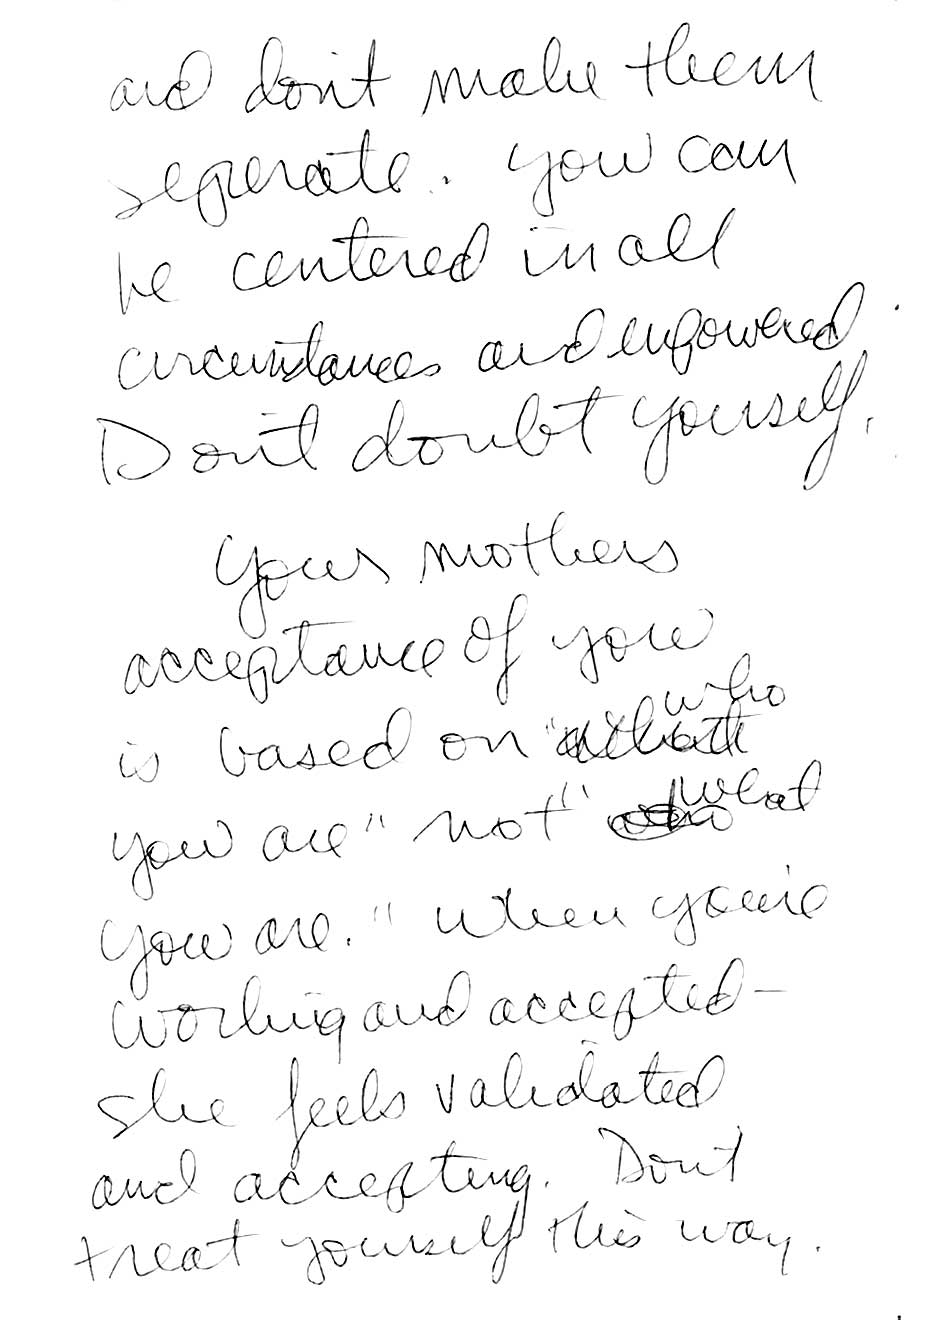 and don't make them
seperate. You can
be centered in all
circumstances and empowered.
Don't doubt yourself.
Your mothers
acceptance of you
is based on "what who
you are" not" who what
you are." When you're
working and accepted -
she feels validated
and accepting. Don't
treat yourself this way.